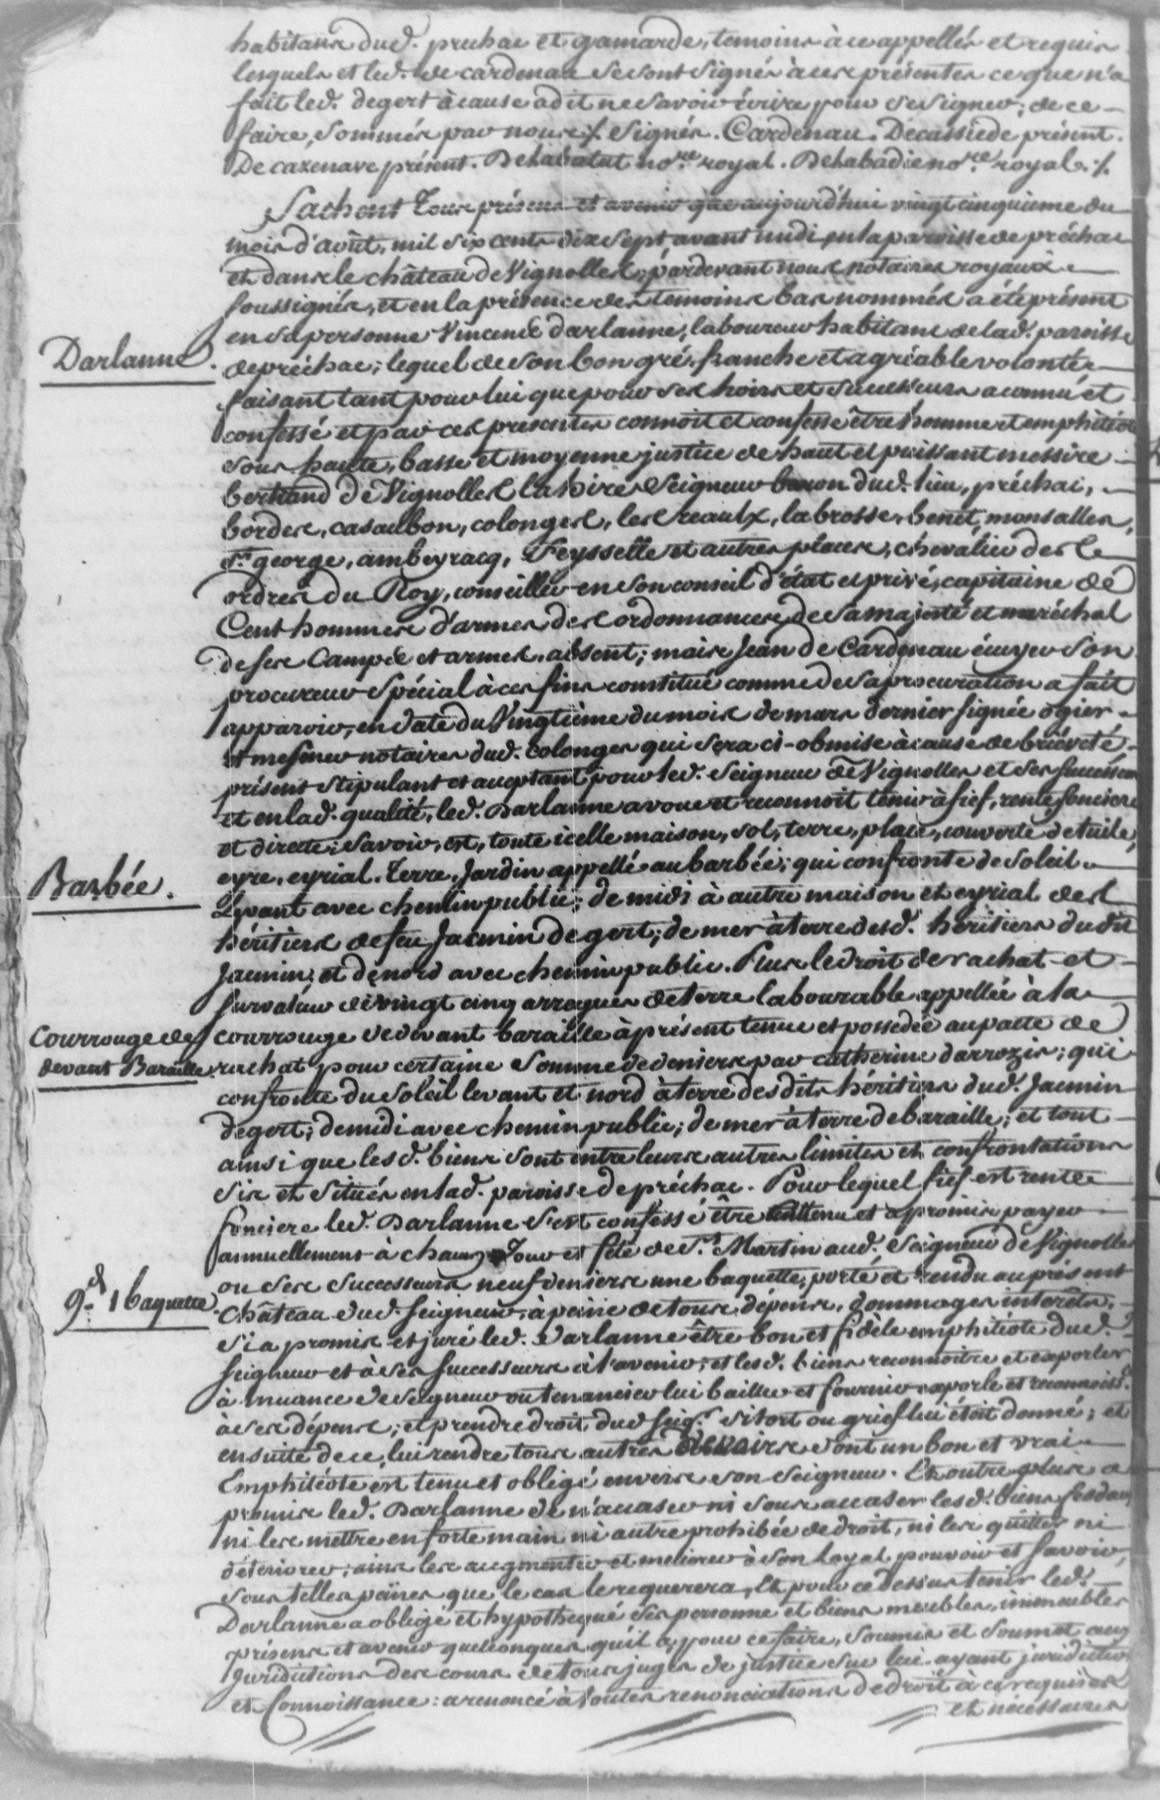 habitans dud. prechac et gamarde, temoins à ce appellés et requis
lesquels et led. de cardenau se sont signés à ces présentes ce que n'a
fait led. degert à cause a dit ne savoir écrire pour se signer; de ce
faire, sommés par nous ./. signés. Cardenau. Decassiede présent.
De cazenave présent. Dehabatut no.re royal. Dehabadie no.re royal. ./.
Sachent Tous présens et avenir que aujourd'hui vingt cinquieme du
mois d'août, mil six cents dix sept avant midi en la paroisse de préchac
et dans le château de Vignolles, pardevant nous notaires royaux
soussignés, et en la présence des temoins bas nommés a été présent
en sa personne Vincend darlanne, laboureur habitant de lad. paroisse
Darlanne.
de préchac; lequel de son bon gré, franche et agréable volonté
faisant tant pour lui que pour ses hoirs et successeurs a connu et
confessé et par ces presentes connoit et confesse être homme et emphitéote
sous haute, basse et moyenne justice de haut et puissant messire
bertrand de Vignolles la hire Seigneur baron dud. lieu, préchac,
bordes, casaubon, colonges, les reaulx, la brosse, benet, monsalles,
St. george, ambeyracq, Feysselle et autres places, chevalier des
ordres du Roy, conseiller en son conseil d'état et privé, capitaine de
Cent hommes d'armes des ordonnances de sa majesté et maréchal
de ses Camps et armes, absent; mais Jean de Cardenau écuyer son
procureur spécial à ces fins constitué comme de sa procuration a fait
apparoir, en date du Vingtieme du mois de mars dernier signée ogier
et mesmer notaires dud. Colonges qui sera ci-obmise à cause de briéveté
présent stipulant et acceptant pour led. Seigneur de Vignolles et ses successeurs
et en lad. qualité, led. Darlanne avoue et reconnoit tenir à fief, rente fonciere
et directe; savoir, est, toute icelle maison, sol, terre, place, couverte de tuile,
Barbée.
eyre, eyrial, Terre, Jardin appellé au barbée; qui confronte de soleil
Levant avec chemin public; de midi à autre maison et eyrial des
héritiers de feu Jacmin degert; de mer à terre desd. héritiers dudit
Jacmin; et de nord avec chemin public. Plus le droit de rachat et
survaleur de vingt cinq arregues de terre labourable appellée à la
Courrouge de
devant Baraille
courrouge de devant baraille à présent tenue et possedée au pacte de
rachat pour certaine somme de deniers par catherine darrozis; qui
confronte du soleil levant et nord à terre des dits héritiers dud. Jacmin
degert; de midi avec chemin public; de mer à terre de baraille; et tout
ainsi que lesd. biens sont entre leurs autres limites et confrontations
sis et situés en lad. paroisse de préchac. Pour lequel fief est rente
fonciere led. Darlanne s'est confessé être tenu et a promis payer
annuellement à chaun Jour et fête de St. Martin aud. Seigneur de Vignolles
ou ses successeurs neuf deniers une baquette, porté et rendu au présent
9.d 1 baquette.
Château dud. seigneur, à peine de tous dépens, dommages interêts.
Si a promis et juré led. darlanne être bon et fidèle emphitéote dud.
seigneur et à ses successeurs à l'avenir; et lesd. biens reconnoitre et exporler
à muance de seigneur ou tenancier lui bailler et fournir exporle et reconnoiss.
à ses dépens; et prendre droit dud. seig.r si tort ou grief lui étoit donné; et
ensuite de ce, lui rendre tous autres devoirs dont un bon et vrai
Emphitéote est tenu et obligé envers son Seigneur. Et outre plus a
promis led. Darlanne de n'accaser ni sous accaser lesd. biens feodaux
ni les mettre en forte main ni autre prohibée de droit, ni les quitter ni
détériorer; ains les augmenter et meliorer à son loyal pouvoir et savoir,
sous telles peines que le cas le requerera, Et pour ce dessus tenir led.
Darlanne a obligé et hypothequé ses personne et biens meubles, immeubles
présens et avenir quelconques qu'il a, pour ce faire, soumis et soumet aux
Juridictions des cours de tous juges de justice sur lui ayant juridiction
et Connoissance: a renoncé à toutes renonciations de droit à ce requises
et nécessaires